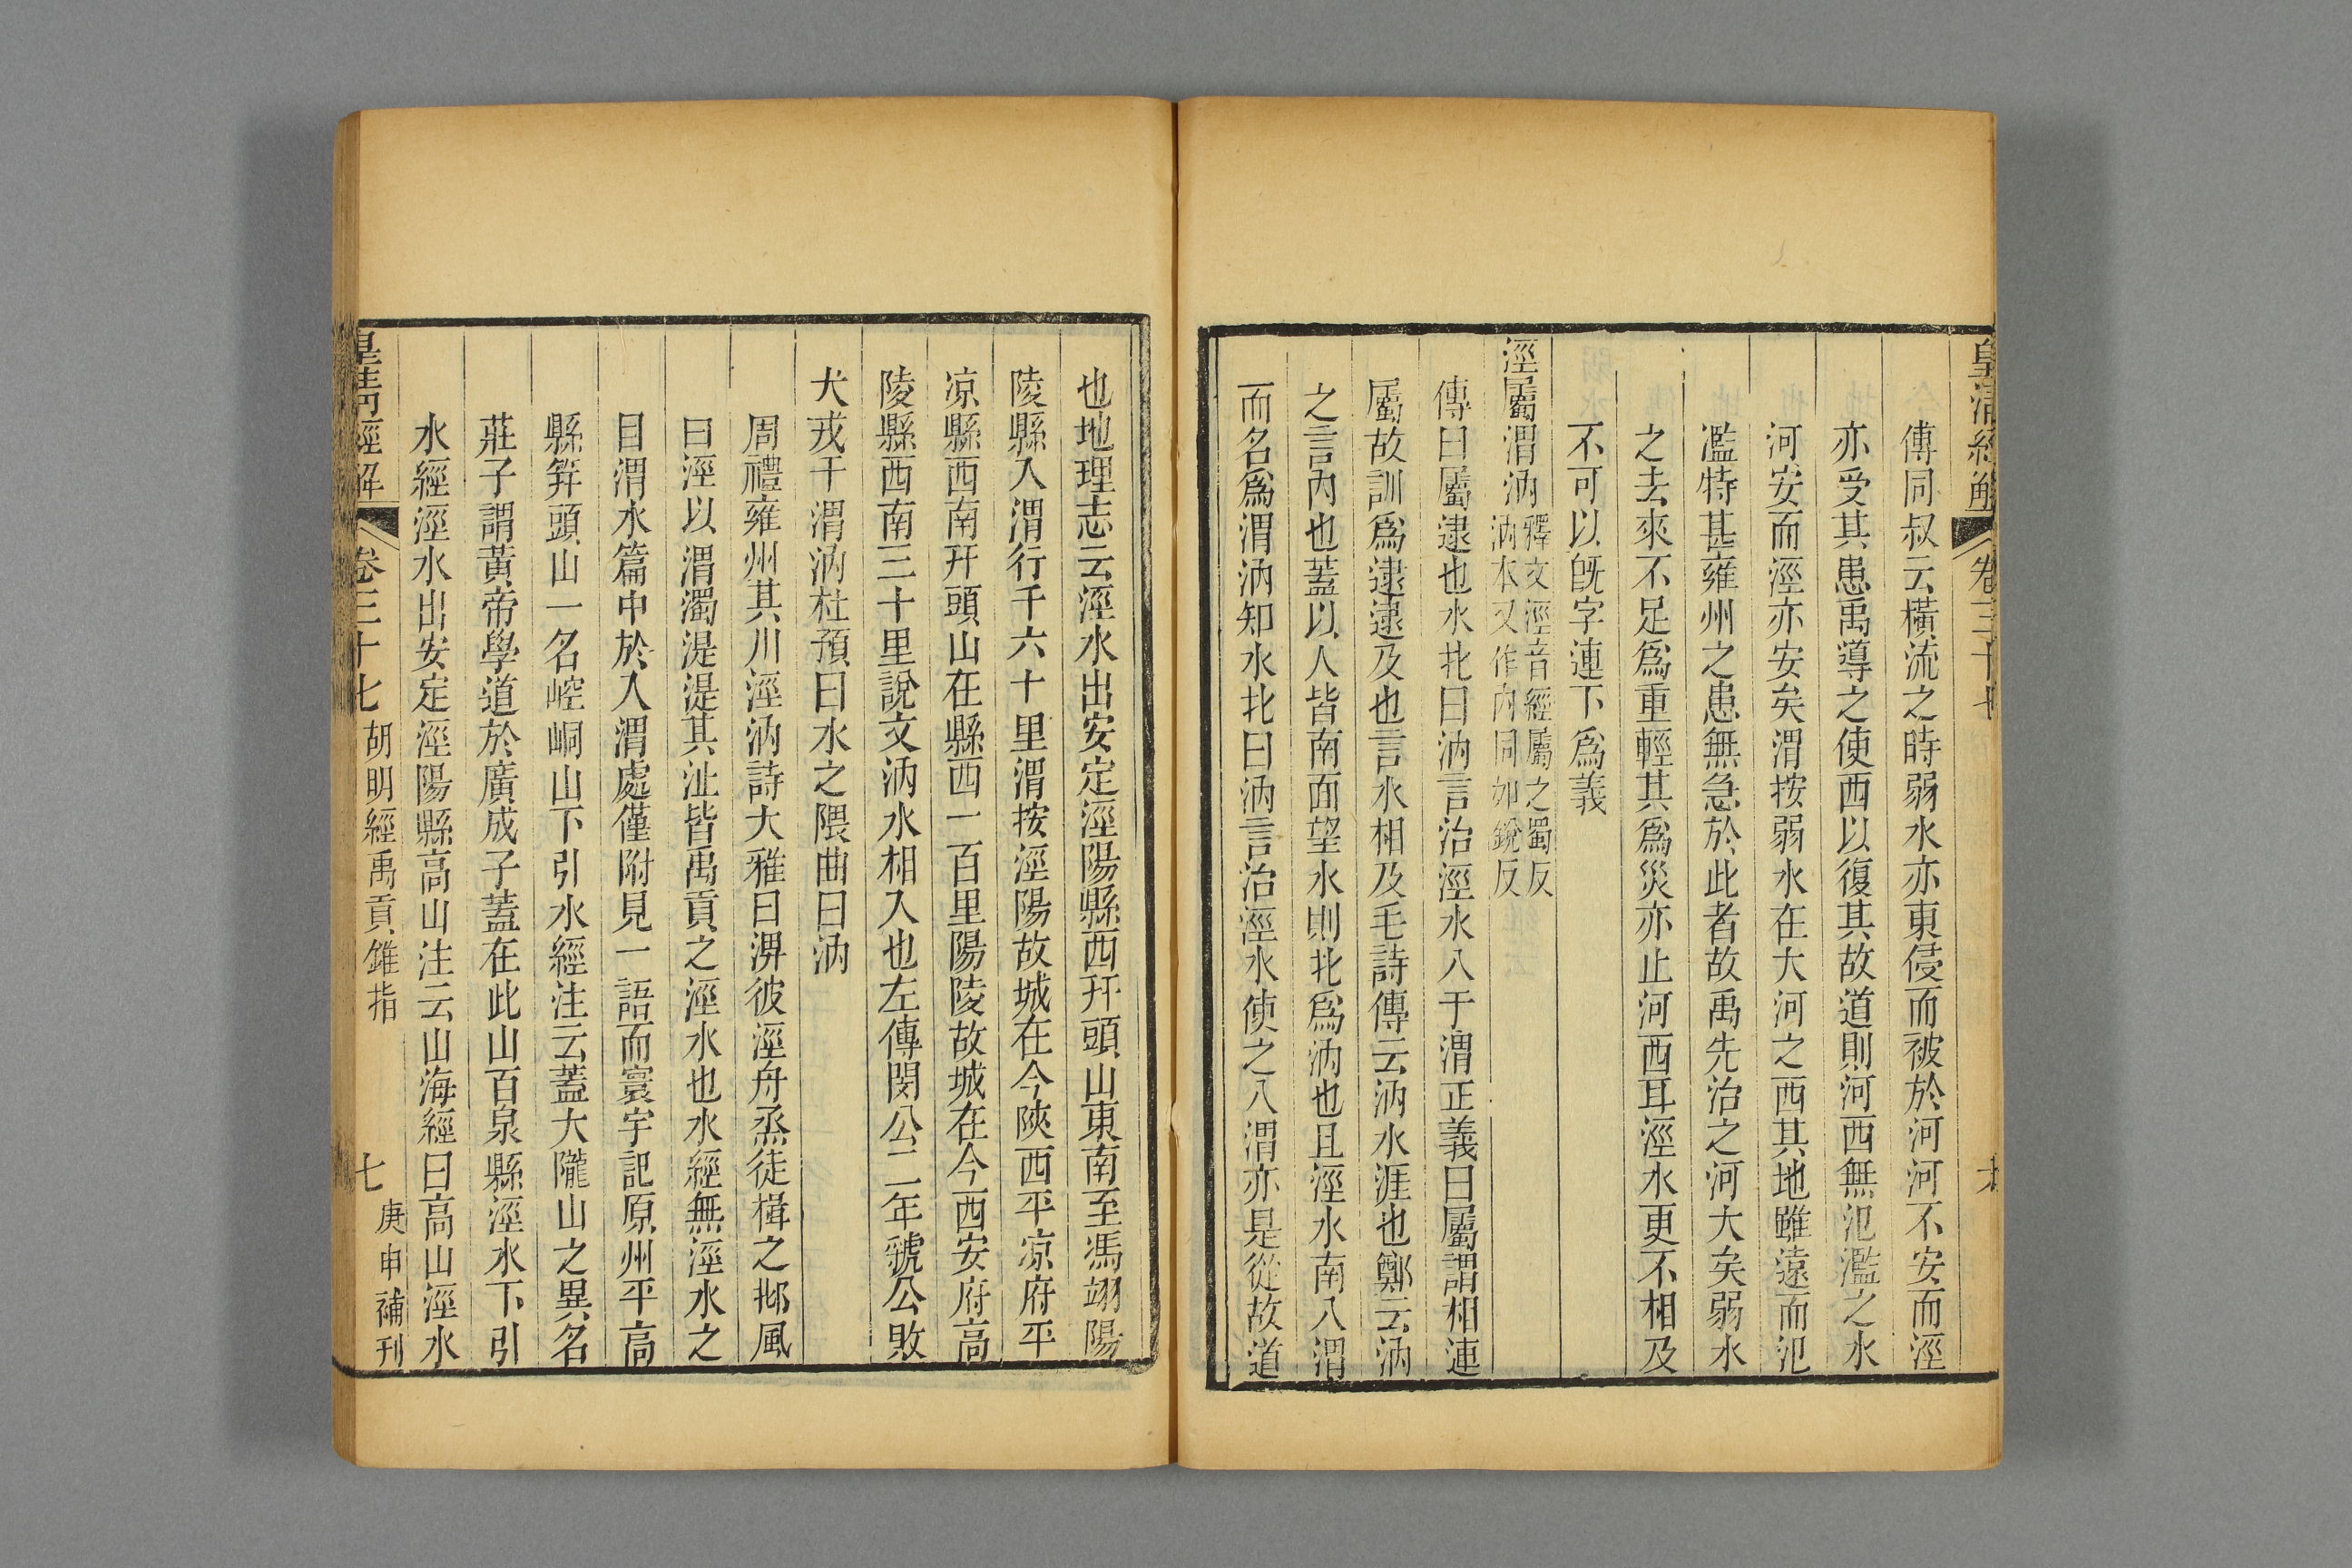 皇清經解 卷三十七
傳同叔云橫流之時弱水亦東侵而被於河河不安而涇
亦受其患禹導之使西以復其故道則河西無氾濫之水
河安而涇亦安矣渭按弱水在大河之西其地雖遠而氾
濫特甚雍州之患無急於此者故禹先治之河大矣弱水
之去來不足爲重輕其爲災亦止河西耳涇水更不相及
不可以旣字連下爲義
涇屬渭汭釋文涇音經屬之蜀反
汭本又作內同如銳反
傳曰屬逮也水北曰汭言治涇水入于渭正義曰屬謂相連
屬故訓爲逮逮及也言水相及毛詩傳云汭水涯也鄭云汭
之言內也蓋以人皆南面望水則北爲汭也且涇水南入渭
而名爲渭汭知水北曰汭言治涇水使之入渭亦是從故道
也地理志云涇水出安定涇陽縣西幵頭山東南至馮翊陽
陵縣入渭行千六十里渭按涇陽故城在今陝西平凉府平
凉縣西南幵頭山在縣西一百里陽陵故城在今西安府高
陵縣西南三十里說文汭水相入也左傳閔公二年虢公敗
犬戎于渭汭杜預曰水之隈曲曰汭
周禮雍州其川涇汭詩大雅曰淠彼涇舟烝徒楫之邶風
曰涇以渭濁湜湜其沚皆禹貢之涇水也水經無涇水之
目渭水篇中於入渭處僅附見一語而寰宇記原州平高
縣笄頭山一名崆峒山下引水經注云蓋大隴山之異名
莊子謂黃帝學道於廣成子蓋在此山百泉縣涇水下引
水經涇水出安定涇陽縣高山注云山海經曰高山涇水
皇淸經解 卷三十七 胡明經禹貢錐指 七 庚申補刊